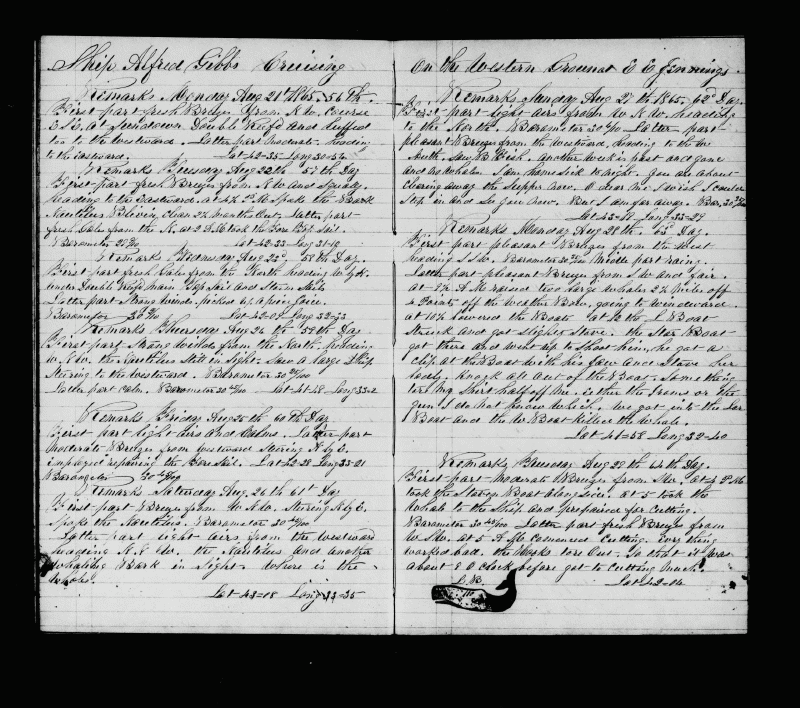 Ship Alfred Gibbs Cruising
Remarks Monday Aug 21st 1865. 56 th.
First part fresh Breeze from N W. Course
E S E. at Sundown Double Reefd and luffed
too to the westward. Latter part Moderate. heading
to the eastward. Lat 42-35 Long 30-54
Remarks Tuesday Aug 22th 57th Day
First part fresh Breeze from N W and Squaly
heading to the Eastward. at P.M. Spoke the Bark
Nautilus Clean 2½ months Out. Latter part
fresh Gale from the N. at 2 A.M. took the Fore Top Sail.
Barometer Lat 42-33 Long 31-19
Remarks Wednesday Aug 23d, 58th Day.
First part fresh Gale from the North heading W by N.
under Double reefd main Top Sail and Storm Sails
Latter part Strong winds. picked up a poor
Barometer 30 Lat 42-07 Long 32-33
Remarks Thursday Aug 24 th 59th Day
First part Strong winds from the North, heading
W. N. W. the Nautilus Still in Sight. Saw a large Ship
Steering to the westward. Barometer 30
Latter part Calm. Barometer 30 Lat 41-48 Long 33-2
Remarks Friday Aug 25th 60th Day
First part light airs and Calms. Latter part
Moderate Breeze from westward Steering N by E.
imployed repairing the Fore Sail. Lat 42-28 Long 33-21
Barometer 30
Remarks Saturday Aug. 26th 61st Day
First part Breeze from W N W. Steering N by E.
Spoke the Nautilus. Barometer 30
Latter part light airs from the westward
heading N. N W. the Nautilus and another
whaleing Bark in Sight. where is the
Whales.
Lat 43-18 Long 33-35
On the Western Ground E E Jennings.
Remarks Sunday Aug 27 th 1865. 62d Day.
First part light airs from W N W. heading
to the North. Barometer 30 Latter part
pleasant Breeze from the westward, heading to the
North. Saw B Fish. another week is past and gone
and no whales. I am home sick to night. You are about
clearing away the Supper now. O dear me I wish I could
Step in and See you now. But I am far away. Bar, 30
Lat 43-18 Long 33-29
Remarks Monday Aug 28th. 63d Day.
First part pleasant Breeze from the West
heading S S W. Barometer 30 Middle part raing.
Latter part pleasant Breeze from S W and fair.
at A.M. raised two large whales 2½ Miles off
4 Points off the weather Bow, going to windward
at 10½ lowered the Boats at 12 the L Boat
Struck and got Slightly Stove. the Star Boat
got there and went up to Shoot him, he got a
Clip at the Boat with his Jaw and Stove her
badly. knock all out of the Boat. Something
tore my Shirt half off me. either the Irons or the
Gun I do not know which. we got into the Lar
Boat and the W Boat Killed the whale.
Lat 41-58 Long 32-40
Remarks Tuesday Aug 29th 64 th Day.
First part Moderate Breeze from at 4 P.M.
took the Starbon Boat alongside. at 5 took the
whale to the Ship and prepaired for Cutting.
Barometer 30 Latter part fresh Breeze from
W S W. at 5 A.M Comenced Cutting. Every thing
worked bad. the Hooks tore Out. So that it was
about 8 O clock before got to Cutting Much.
L. B. Lat 42-04
110